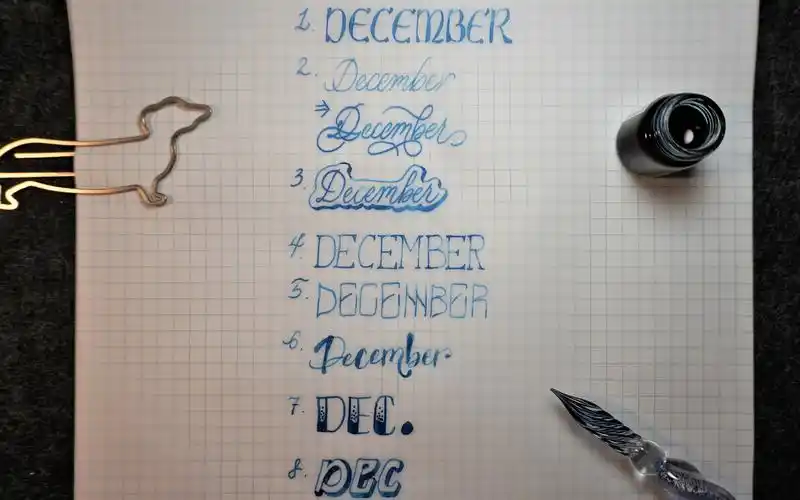 1. DECEMBER
2. December
⇒ December
3. December
4. DECEMBER
5. DECEMBER
6. December
7. DEC.
8. DEC